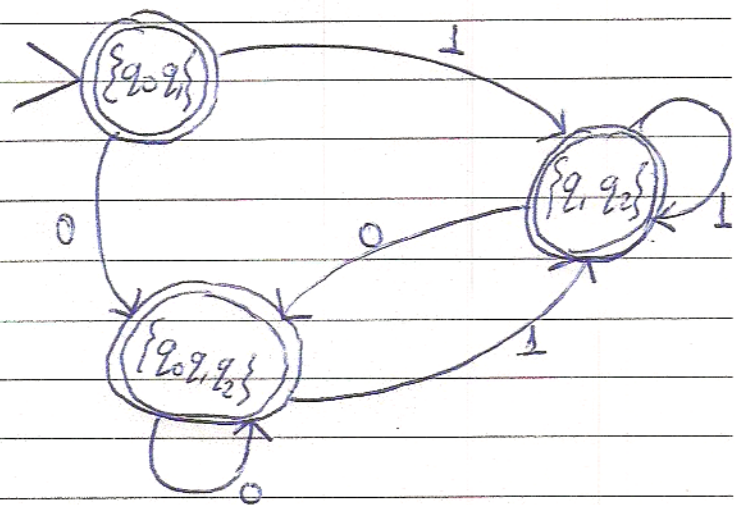 {q₀q₁}
1
{q₁q₂}
1
0
0
1
{q₀q₁q₂}
0